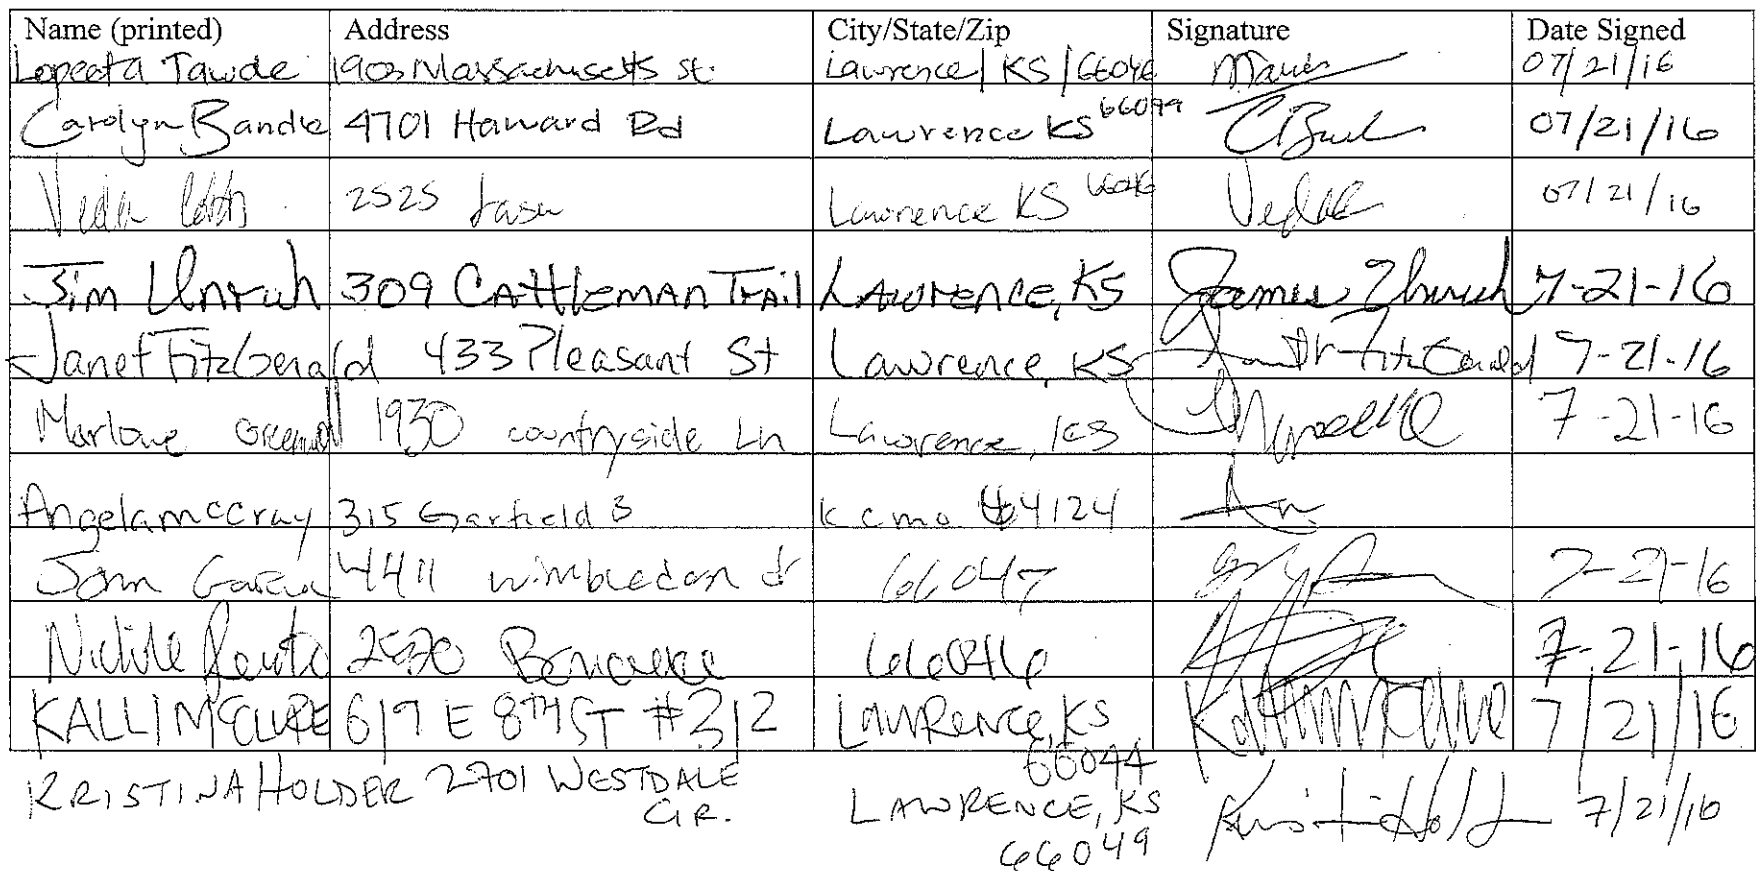 Name (printed) Address City/State/Zip Signature Date Signed
Tawde 1903 Massachusetts St. Lawrence/ KS /66046 07/21/16
Carolyn Bandle 4701 Harvard Rd Lawrence KS 66049 07/21/16
Veda 2525 Lawrence KS 66046 07/21/16
Jim Unruh 309 CAttlemAN TrAil LAwrence, KS James Unruh 7-21-16
Janet FitzGerald 433 Pleasant St Lawrence, KS FitzGerald 7-21-16
Marlowe 1930 countryside Ln Lawrence, KS 7-21-16
Angela mccray 315 Garfield kcmo 64124
John Garcia 4411 wimbledon dr 66047 7-21-16
66046 7-21-16
KALLI MCCLURE 619 E 8TH ST #312 LAWRENCE, KS 7/21/16
66044
KRISTINA HOLDER 2701 WESTDALE LAWRENCE, KS 7/21/16
CIR. 66049